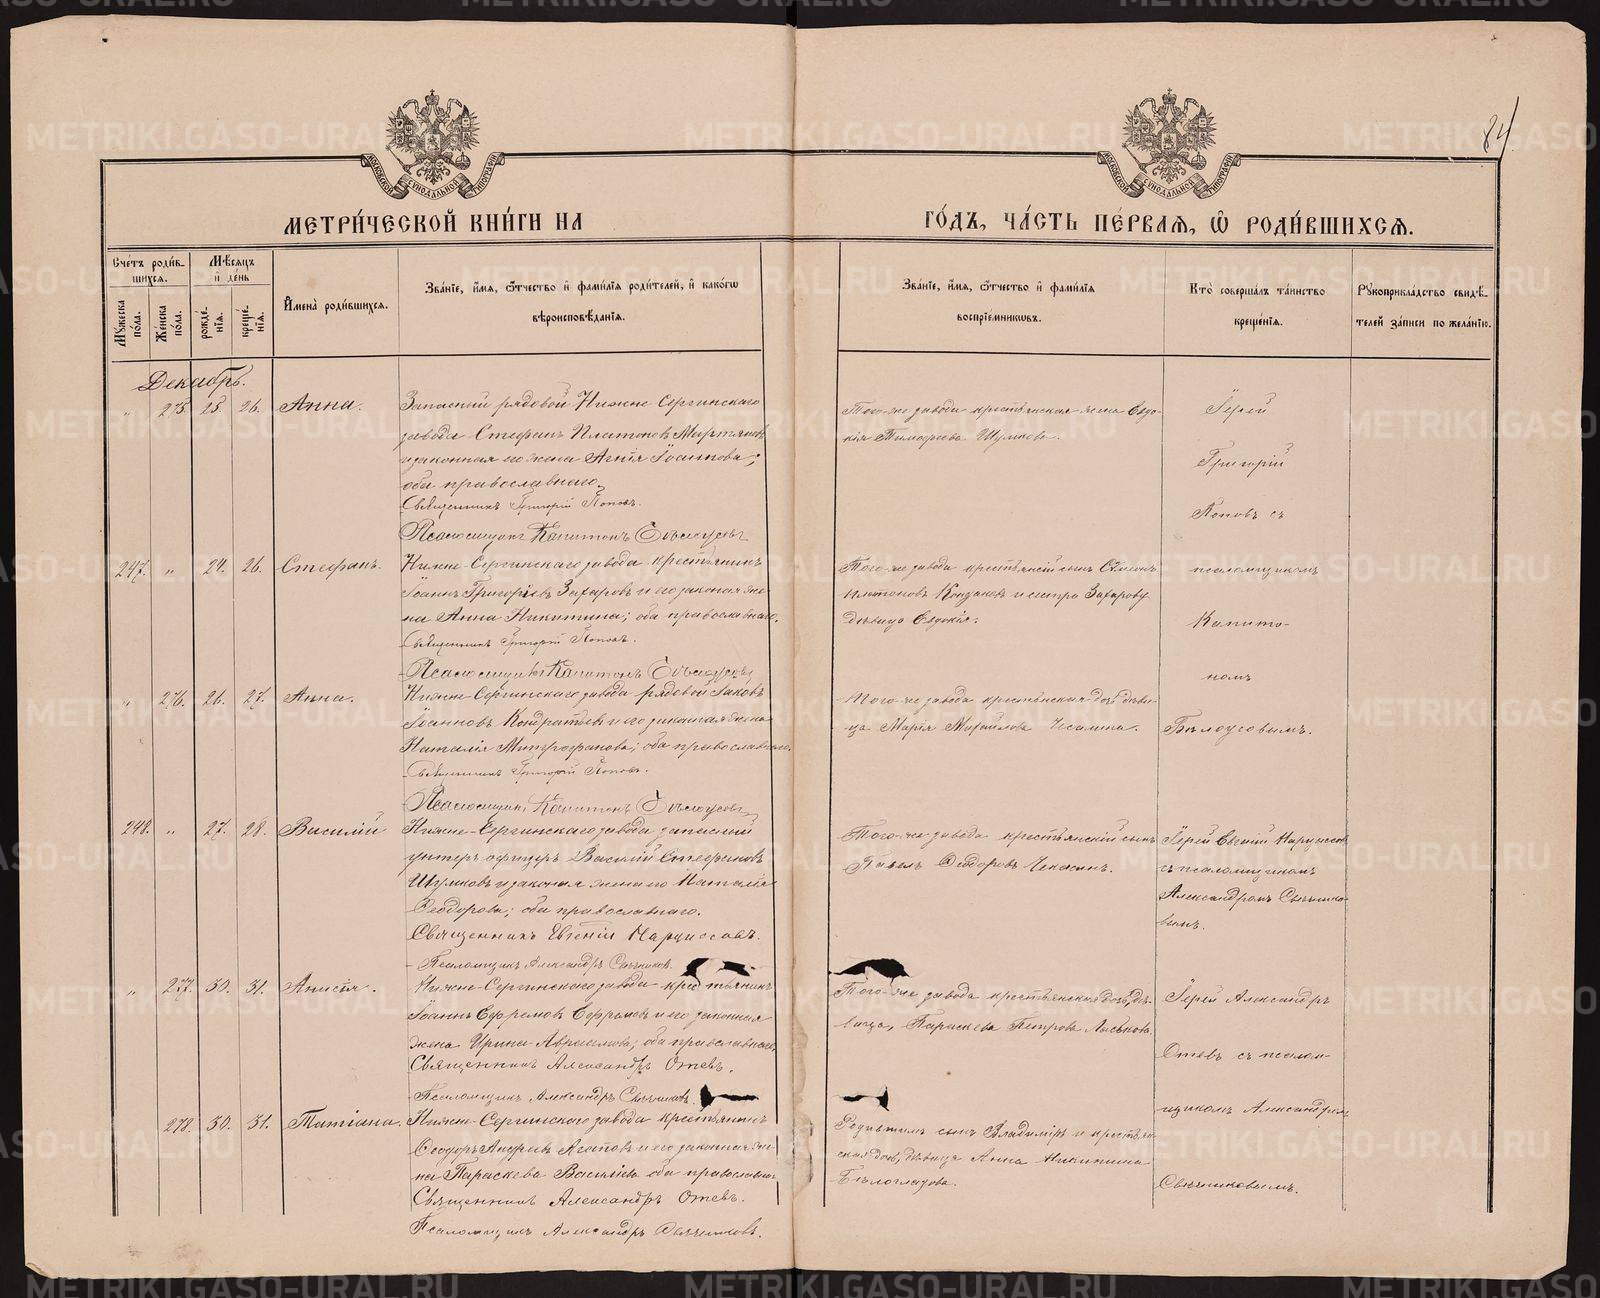 84
МЕТРИ́ЧЕСКОЙ КНИ́ГИ НА
ГО́ДЪ, ЧА́СТЬ ПЕ́РВАЯ, Ѽ РОДИ́ВШИХСЯ.
Сче́тъ роди́в-
шихся.
Мѣ́сяцъ
и де́нь
Му́жеска по́ла.
Же́нска по́ла.
рожде́-
нія.
креще́-
нія.
Имена̀ роди́вшихся.
Зва́ніе, и́мя, ѻ́тчество и фами́лія роди́телей, и како́гѡ
вѣроисповѣ́данія.
Зва́ніе, и́мя, ѻ́тчество и фами́лія
воспріе́мникѡвъ.
Кто̀ соверша́лъ та́инство
креще́нія.
Рукоприкла́дство свидѣ́-
телей за́писи по жела́нію.
Декабрь.
" 275. 25. 26. Анна.
Запасный рядовой Нижне-Сергинскаго
завода Стефанъ Платоновъ Мартяновъ
и законная его жена Агнія Іоаннова;
оба православнаго.
Священникъ Григорій Поповъ.
Псаломщикъ Капитонъ Бѣлоусовъ
Того-же завода крестьянская жена Евдо-
кія Тимофеева Шумкова.
Іерей
Григорій
Поповъ съ
247. " 24. 26. Стефанъ.
Нижне-Сергинскаго завода крестьянинъ
Іоаннъ Григорьевъ Захаровъ и его законая же-
на Анна Никитина; оба православнаго.
Священникъ Григорій Поповъ.
Псаломщикъ Капитонъ Бѣлоусовъ
Того-же завода крестьянскій сынъ Симеонъ
Платоновъ Кондаковъ и сестра Захарову
дѣвица Евдокія.
псаломщикомъ
Капито-
номъ
" 276. 26. 27. Анна.
Нижне-Сергинскаго завода рядовой Іаковъ
Іоанновъ Кондратьевъ и его законная жена
Наталія Митрофанова; оба православнаго.
Священникъ Григорій Поповъ.
Псаломщикъ Капитонъ Бѣлоусовъ
Того-же завода крестьянская дочь дѣви-
ца Марія Михайлова
Бѣлоусовымъ.
248. " 27. 28. Василій
Нижне-Сергинскаго завода запасный
унтеръ офицеръ Василій Стефановъ
Шумковъ и законая жена его Наталія
Ѳеодорова; оба православнаго.
Священникъ Евгеній Нарциссовъ.
Псаломщикъ Александръ Свѣчниковъ.
Того-же завода крестьянскій сынъ
Павелъ Ѳеодоровъ Чекасинъ.
Іерей Евгеній Нарциссовъ
съ псаломщикомъ
Александромъ Свѣчнико-
вымъ.
" 277. 30. 31. Анисія.
Нижне-Сергинскаго завода крестьянинъ
Іоаннъ Ефремовъ Ефремовъ и его законная
жена Ирина Авраамова; оба православнаго,
Священникъ Александръ Отевъ.
Псаломщикъ Александръ Свѣчниковъ.
Того-же завода крестьянская дочь, дѣ-
вица, Параскева Петрова
Іерей Александръ
Отевъ съ псалом-
278. 30. 31. Татіана.
Нижне-Сергинскаго завода крестьянинъ
Ѳеодоръ Андреевъ Агаповъ и его законная же-
на Параскева Василіева оба православнаго
Священникъ Александръ Отевъ.
Псаломщикъ Александръ Свѣчниковъ.
Родителя сынъ Владиміръ и крестьян-
ская дочь, дѣвица Анна Никитина
Бѣлоглазова.
щикомъ Александромъ
Свѣчниковымъ.